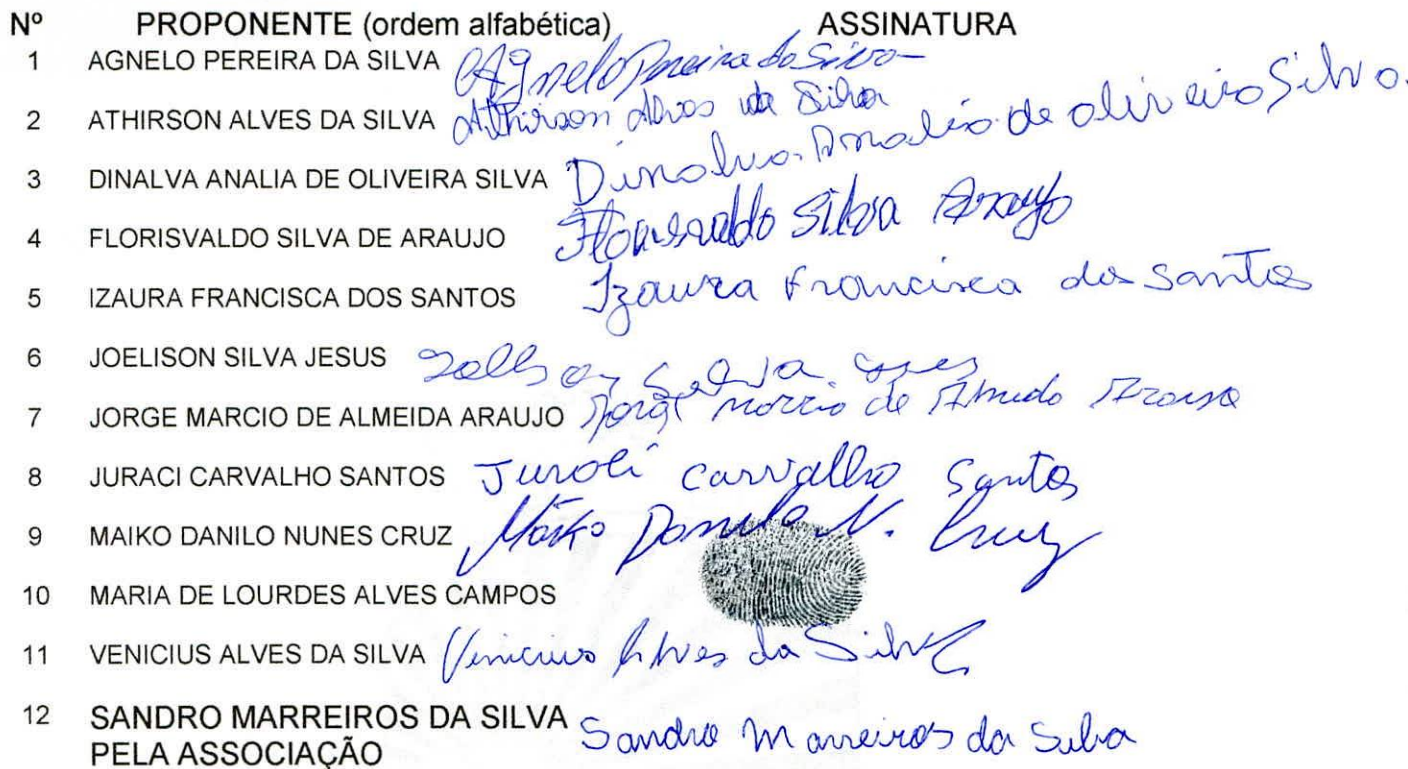 Nº PROPONENTE (ordem alfabética) ASSINATURA
1 AGNELO PEREIRA DA SILVA Agnelo Pereira da Silva
2 ATHIRSON ALVES DA SILVA Athirson Alves da Silva
3 DINALVA ANALIA DE OLIVEIRA SILVA Dinalva Analia de oliveira Silva.
4 FLORISVALDO SILVA DE ARAUJO Florisvaldo Silva Araujo
5 IZAURA FRANCISCA DOS SANTOS Izaura Francisca dos Santos
6 JOELISON SILVA JESUS
7 JORGE MARCIO DE ALMEIDA ARAUJO Jorge Marcio de
8 JURACI CARVALHO SANTOS Juraci Carvalho Santos
9 MAIKO DANILO NUNES CRUZ Maiko Danilo N. Cruz
10 MARIA DE LOURDES ALVES CAMPOS
11 VENICIUS ALVES DA SILVA Venicius Alves da Silva
12 SANDRO MARREIROS DA SILVA Sandro Marreiros da Silva
PELA ASSOCIAÇÃO